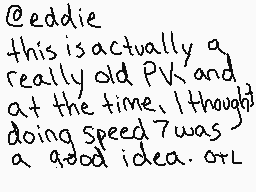 @eddie
this is actually a
really old PV, and
at the time, I thought
doing speed 7 was
a good idea. OTL